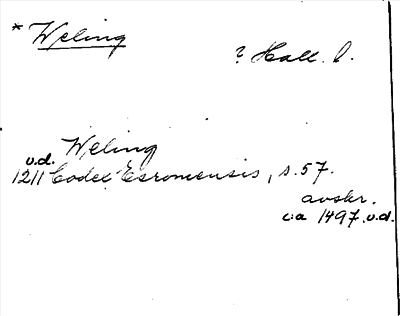 * Weling
? Hall. l.
Weling
u.d.
1211 Codex Esromensis, s. 57.
avskr.
c:a 1497.u.d.